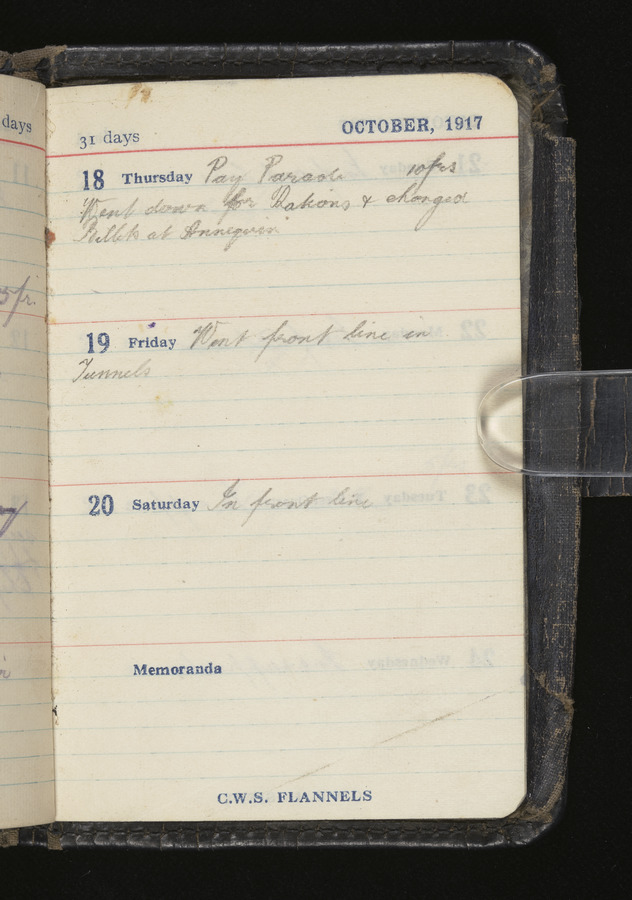 days
31 days OCTOBER, 1917
18 Thursday Pay Parade 10frs
Went down for Rations & changed
Billets at Annequin
5fr.
19 Friday Went front line in
Tunnels
20 Saturday In front line
Memoranda
C.W.S. FLANNELS